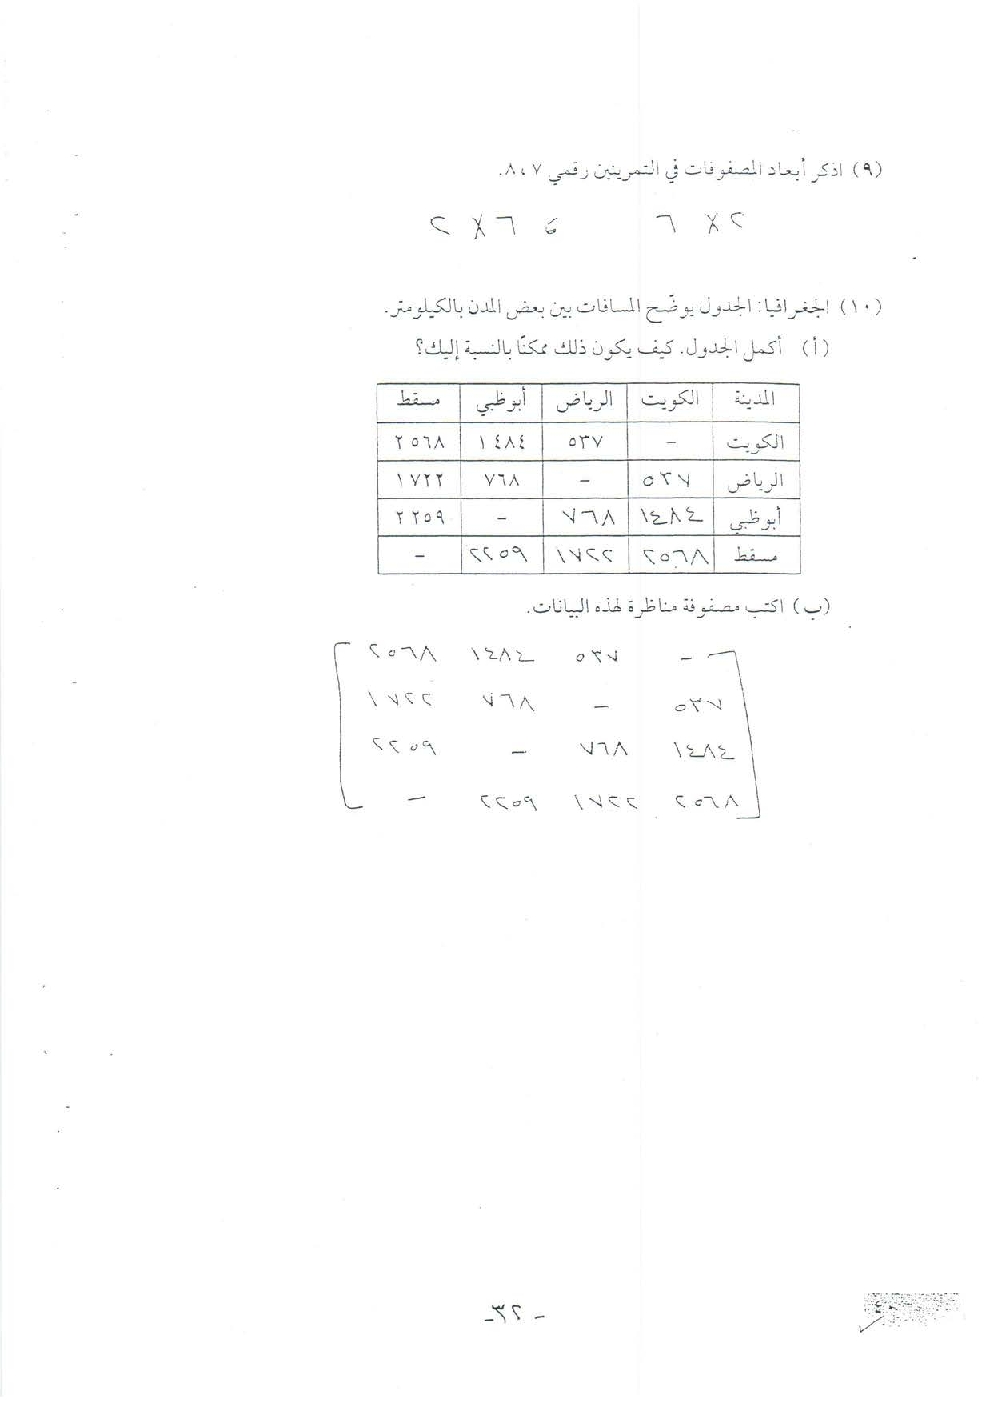 (٩) اذكر أبعاد المصفوفات في التمرينين رقمي ٧، ٨.
٢ × ٦ ، ٦ × ٢
(١٠) الجغرافيا: الجدول يوضّح المسافات بين بعض المدن بالكيلومتر.
(أ) أكمل الجدول. كيف يكون ذلك ممكنًا بالنسبة إليك؟
المدينة الكويت الرياض أبوظبي مسقط
الكويت – ٥٣٧ ١٤٨٤ ٢٥٦٨
الرياض ٥٣٧ – ٧٦٨ ١٧٢٢
أبوظبي ١٤٨٤ ٧٦٨ – ٢٢٥٩
مسقط ٢٥٦٨ ١٧٢٢ ٢٢٥٩ –
(ب) اكتب مصفوفة مناظرة لهذه البيانات.
– ٥٣٧ ١٤٨٤ ٢٥٦٨
٥٣٧ – ٧٦٨ ١٧٢٢
١٤٨٤ ٧٦٨ – ٢٢٥٩
٢٥٦٨ ١٧٢٢ ٢٢٥٩ –
-٣٢-